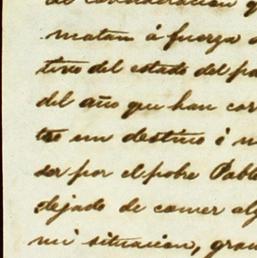 de consideracion q
matan á fuerza d
tivo del estado del pa
del año que han cor
un destino ó n
ser por el pobre Pabl
dejado de comer alg
mi situacion, gran